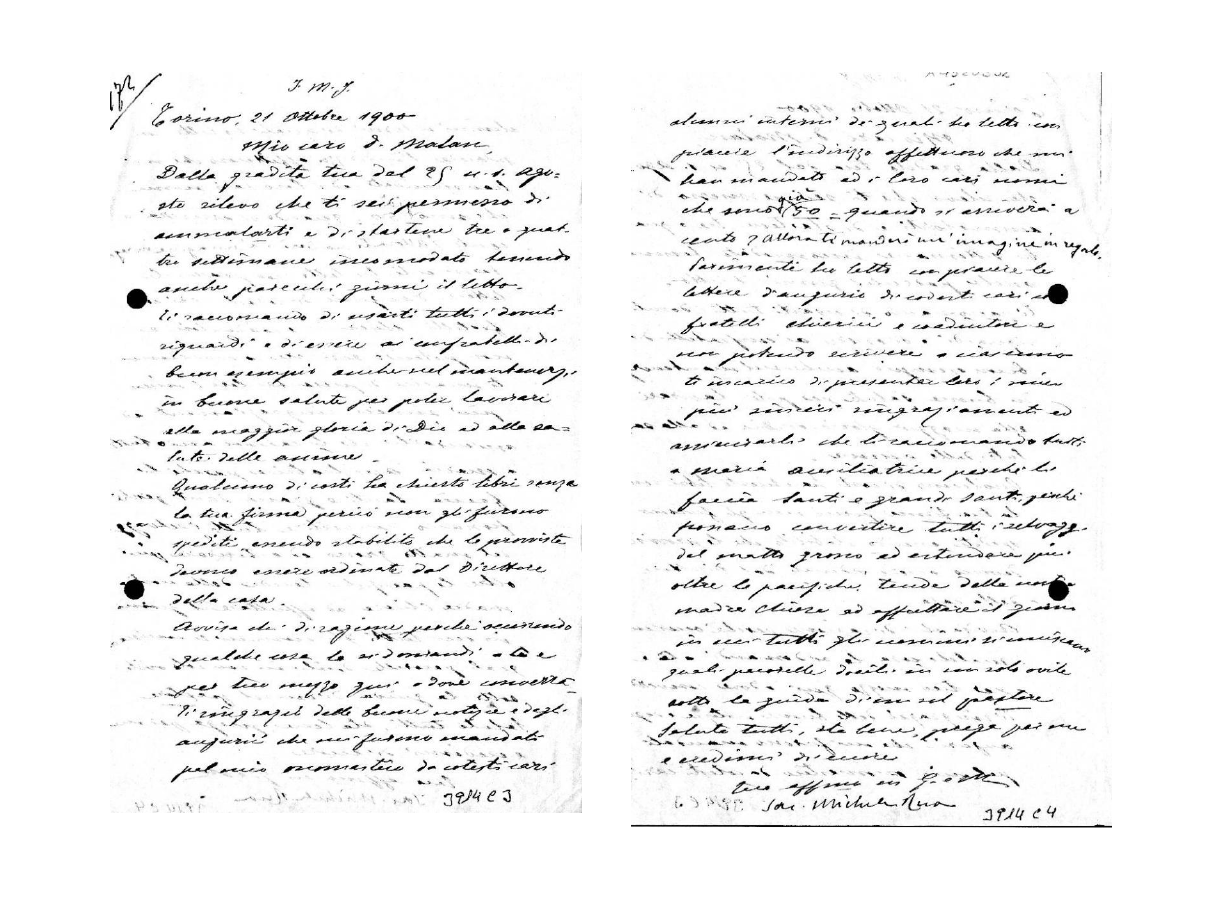 172
J. M. J.
Torino, 21 Ottobre 1900
Mio caro D. Malan,
Dalla gradita tua del 25 u. s. ago=
sto rilevo che ti sei permesso di
ammalarti e di startene tre o quat
tro settimane incomodato tenendo
anche parecchi giorni il letto.
Ti raccomando di usarti tutti i dovuti
riguardi e di essere ai confratelli di
buon esempio anche nel mantenerti
in buona salute per poter lavorare
alla maggior gloria di Dio ed alla sa=
lute delle anime.
Qualcuno di costì ha chiesto libri senza
la tua firma perciò non gli furono
spediti essendo stabilito che le provviste
devono essere ordinate dal Direttore
della casa.
Avvisa chi di ragione perché occorrendo
qualche cosa la si domandi a te e
per tuo mezzo qui o dove converrà
Ti ringrazio delle buone notizie e degli
augurii che mi furono mandati
pel mio onomastico da cotesti cari
3914 C 3
alunni interni dei quali ho letto con
piacere l'indirizzo affettuoso che mi
han mandato ed i loro cari nomi
che sono già 50 = quando si arriverà a
cento? allora ti manderò un'imagine in regalo.
Parimenti ho letto con piacere le
lettere d'augurio di codesti cari con
fratelli chierici e coadiutori e
non potendo scrivere a ciascuno
ti incarico di presentar loro i miei
più sinceri ringraziamenti ed
assicurarli che li raccomando tutti
a Maria Ausiliatrice perché li
faccia santi e grandi santi, perché
possano convertire tutti i selvaggi
del matto grosso ed estendere più
oltre le pacifiche tende della nostra
madre Chiesa ed affrettare il giorno
in cui tutti gli uomini si uniscano
quali pecorelle docili in un solo ovile
sotto la guida di un sol pastore
Saluta tutti, sta bene, prega per me
e credimi di cuore
tuo affmo in G. e M.
Sac. Michele Rua
3914 C 4